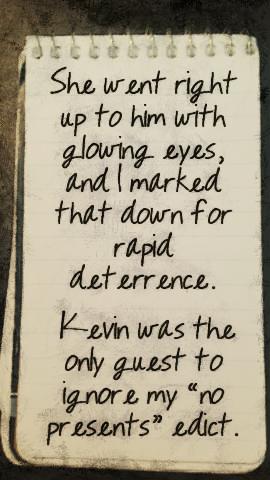 She went right
up to him with
glowing eyes,
and I marked
that down for
rapid
deterrence.
Kevin was the
only guest to
ignore my “no
presents” edict.